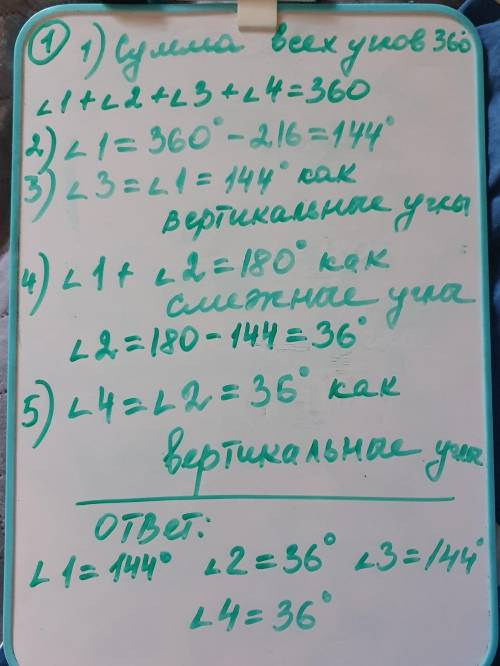 ① 1) Сумма всех углов 360°
∠1+∠2+∠3+∠4=360
2) ∠1=360°-216=144°
3) ∠3=∠1=144° как
вертикальные углы
4) ∠1+ ∠2=180° как
смежные углы
∠2=180-144=36°
5) ∠4=∠2=36° как
вертикальные углы
ОТВЕТ:
∠1=144° ∠2=36° ∠3=144°
∠4=36°